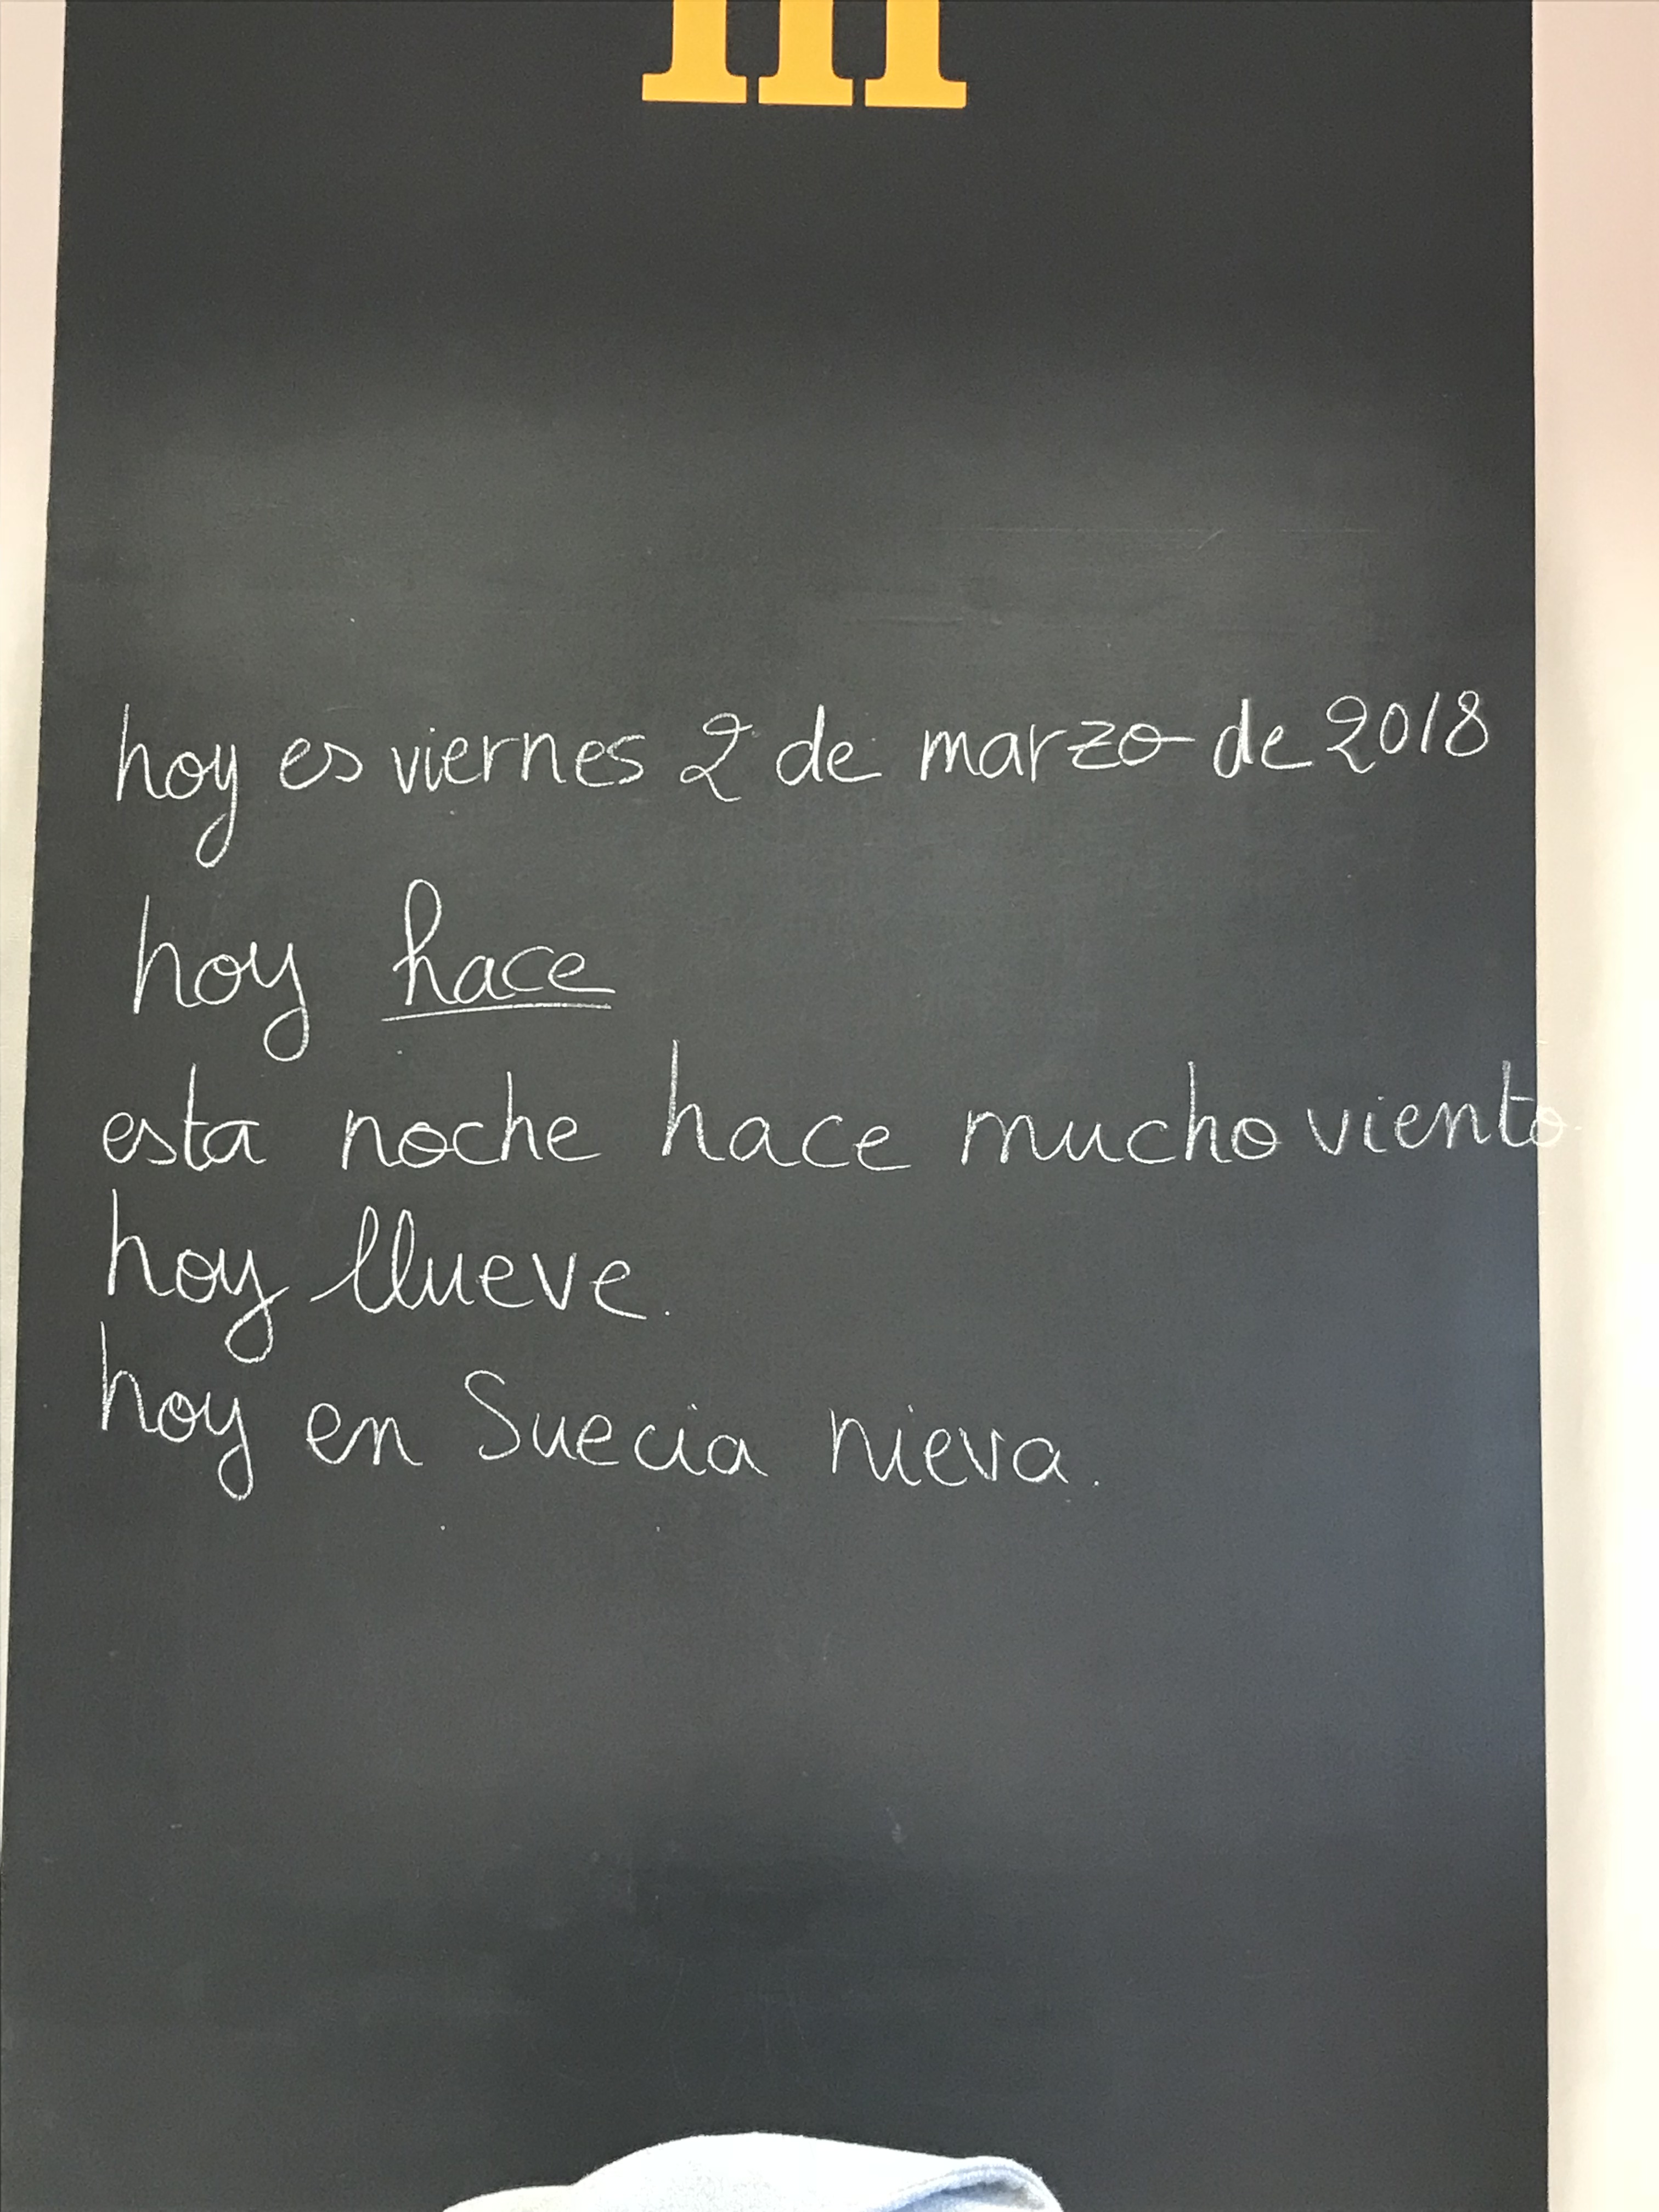 hoy es viernes 2 de marzo de 2018
hoy hace
esta noche hace mucho viento
hoy llueve.
hoy en Suecia nieva.